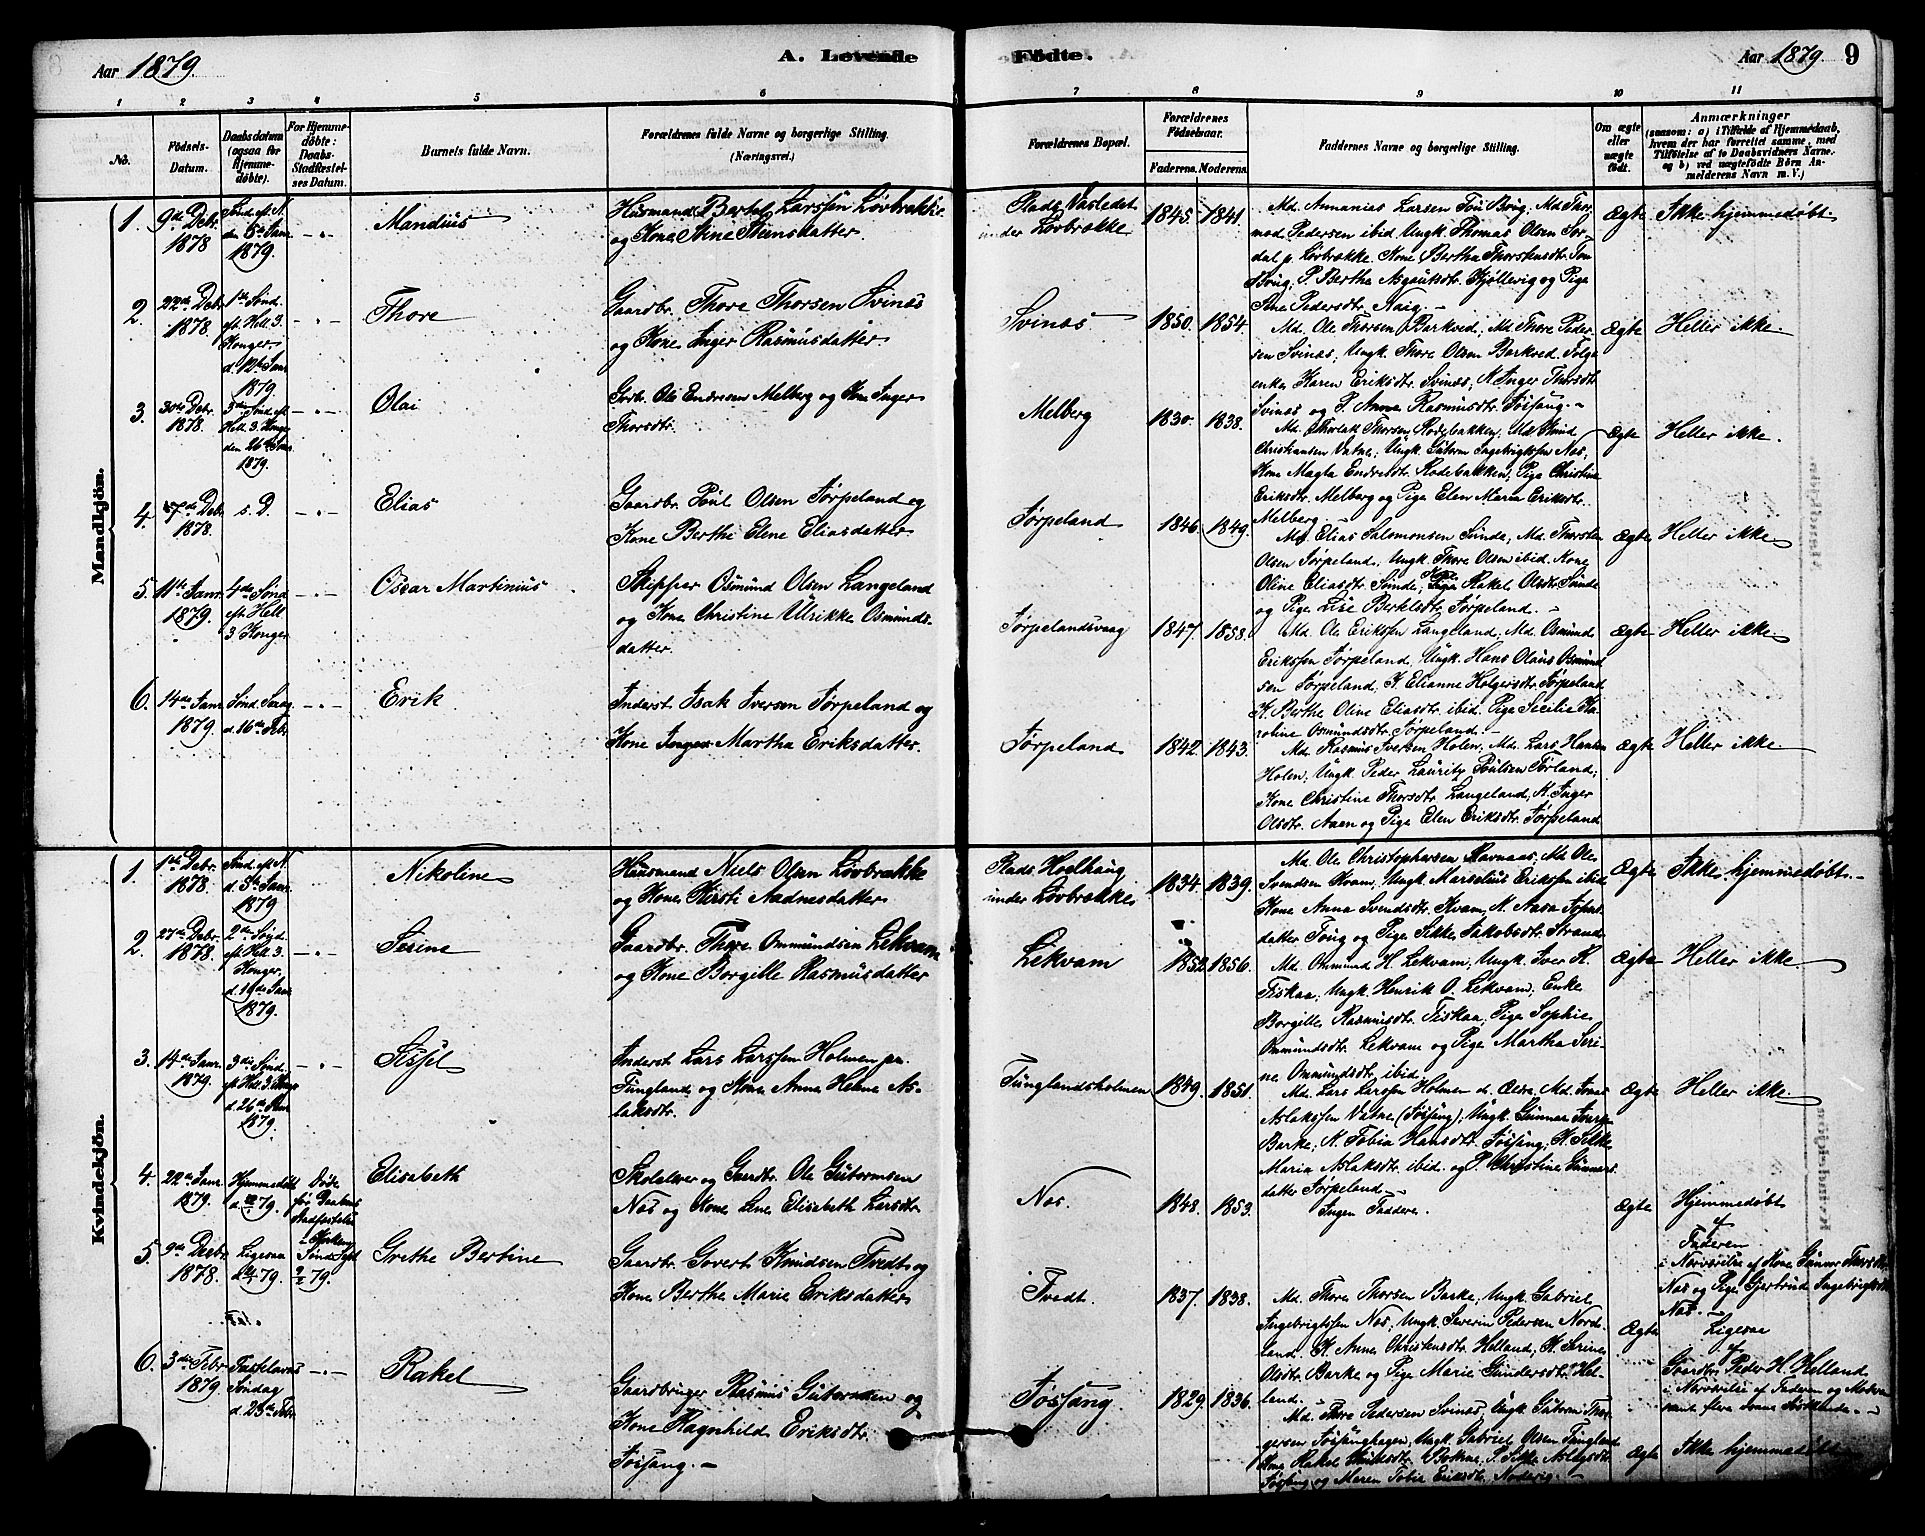 Aar 1879.
A. Levende
Fødte.
Aar 1879. 9
1 2 3 4 5 6
7 8 9 10 11
No.
Fødsels-
Datum.
Daabsdatum
(ogsaa for
Hjemme-
døbte).
For Hjemme-
døbte:
Daabs-
Stadfæstel-
ses Datum.
Barnets fulde Navn.
Forældrenes fulde Navne og borgerlige Stilling.
(Næringsvei.)
Forældrenes Bopæl.
Forældrenes
Fødselsaar.
Faderens. Moderens.
Faddernes Navne og borgerlige Stilling.
Om ægte
eller
uægte
født.
Anmærkninger
(saasom: a) i Tilfælde af Hjemmedaab,
hvem der har forrettet samme, med
Tilføielse af to Daabsvidners Navne,
og b) ved uægtefødte Børn An-
melderens Navn m. V.)
Mandkjön.
1.
9de Debr.
1878
Sønd. eft. N.
den 5te Janr
1879.
Mandius
Husmand Bertel Larssen Løvbrække
og Kone Stine Steinsdatter.
Plads Vasledet
under Løvbrække
1845. 1841.
Md. Annanias Larsen Tou Brug, Md. Thor-
mod Pedersen ibid. Ungk. Thomas Olsen
p. Løvbrække. Kone Bertha Thorstensdt. Tou
Brug, P. Bertha Asgautsdt. Kjøllevig og Pige
Ane Pedersdt. Naig.
Ægte
Ikke hjemmedøbt
2.
22de Debr
1878.
1ste Sønd.
eft. Hell. 3.
Konger
d. 12te Janr
1879
Thore
Gaardbr. Thore Thorsen Svinæs
og Kone Inger Rasmusdatter
Svinæs
1850. 1854.
Md. Ole Thorsen Barkved, Md. Thore Peder-
sen Svinæs, Ungk. Thore Olsen Barkved
enke Karen Eriksdtr. Svinæs; K. Inger Thorsdt.
Svinæs og P. Anna Rasmusdtr. Jøssang.
Ægte
Heller ikke.
3.
30te Debr.
1878.
3die Sønd. eft
Hell. 3. Konger
den 26te Janr
1879.
Olai
Grdbr. Ole Endresen Melberg og Kone Inger
Thorsdtr.
Melberg
1830. 1838.
Md. Thorsen Rodebakken, Md. Knud
Christiansen Vatne; Ungk. Gutorm Ingebrigtsen Nos;
Kone Magta Endresdt. Rodebakken; Pige Christine
Eriksdtr. Melberg og Pige Elen Maria Eriksdtr.
Melberg.
Ægte
Heller ikke.
4.
7de Debr
1878.
s. D.
Elias
Gaardbr. Poul Olsen Jørpeland og
Kone Berthe Elene Eliasdatter
Jørpeland
1846. 1849.
Md. Elias Salomonsen Sunde, Md. Thorsten
Olsen Jørpeland, Ungk. Thore Olsen ibid. Kone
Oline Eliasdtr. Sunde, Rakel Olsdtr. Sunde
og Pige Lise Bertelsdtr. Jørpeland.
Ægte
Heller ikke
5.
11te Janr.
1879.
4de Sønd
eft. Hell.
3 Konger
Oscar Martinius
Skipper Osmund Olsen Langeland
og Kone Christine Ulrikke Osmunds-
datter.
Jørpelandsvaag
1847. 1858.
Md. Ole Eriksen Langeland, Md. Osmund
Eriksen Jørpeland, Ungk. Hans Olaus Osmund-
sen Jørpeland, K. Elianne Holgersdt. Jørpeland
K. Berthe Oline Eliasdtr. ibid. Pige Secilie Ka-
roline Osmundsdtr. Jørpeland.
Ægte
Heller ikke
6.
14de Janr
1879.
Sønd. Sexag
d. 16de Febr
Erik
Inderst Isak Iversen Jørpeland og
Kone Martha Eriksdatter.
Jørpeland
1842. 1843.
Md. Rasmus Iversen Holen, Md. Lars Hansen
Holen, Ungk. Peder Lauritz Poulsen Tørland,
Kone Christine Thorsdtr. Langeland, K. Inger
Olsdtr. Aaen og Pige Elen Eriksdtr. Jørpeland
Ægte
Heller ikke
Kvindekjön.
1.
1ste Debr.
1878.
Sønd. eft. N.
d. 5te Janr.
1879
Nikoline
Husmand Niels Olsen Løvbrække
og Kone Kirsti Aadnesdatter
Plads Hoelhaug
under Løvbrække
1834. 1839.
Md. Ole Christophersen Ravnaas, Md. Ole
Svendsen Kvam; Ungk. Marselius Eriksen ibid
Kone Anna Svendsdt. Kvam, K. Aasa
datter Toug og Pige Sikke Jakobsdt. Strand
Ægte
Ikke hjemmedøbt.
2.
27de Debr.
1878.
2den Sønd
eft. Hell. 3
Konger,
d. 19de Janr
1879.
Serine
Gaardbr. Thore Ommundsen Lekvam
og Kone Borgille Rasmusdatter
Lekvam
1852 1856.
Md. Ommund H. Lekvam; Ungk. Iver K.
Fiskaa; Ungk. Henrik O. Lekvam; Enke
Borgille Rasmusdtr. Fiskaa; Pige Sophie
Ommundsdt. Lekvam og Pige Martha Seri-
ne Ommundsdt. ibid.
Ægte
Heller ikke.
3.
14de Janr.
1879.
3die Sønd.
eft. Hell. 3. Konger
d. 26de Janr
1879.
Sissel
Inderst Lars Larssen Holmen pr.
Tungland og Kone Anna Helene As-
laksdtr.
Tunglandsholmen
1849. 1851.
Md. Lars Larssen Holmen d. Ældre, Md. Ivar
Aslaksen Vatne (Jøssang); Ungk. Gunnar Ivarsen
Barke; K. Tobia Hansdtr. Jøssang, K. Silkke
Maria Aslaksdtr. ibid. og P. Christine Gunnars-
datter Jørpeland
Ægte
Heller ikke
4.
22de Janr
1879.
Hjemmedøbt
d. 79.
Døde
før Daabens
Stadfæstelse
Elisabeth
Skolelærer og Gaardbr. Ole Gutormsen
Nos og Kone Lene Elisabeth Larsdtr.
Nos.
1848. 1853.
Ingen Faddere.
Ægte
Hjemmedøbt
af
Faderen
i Nærværelse af Kone Gunvor Thorsdtr
Nos og Pige Gjertrud Ingebrigtsdt
Nos.
5.
9de Debr
1878.
Ligesaa
79.
79.
Grethe Bertine
Gaardbr. Govert Knudsen Tvedt og
Kone Berthe Marie Eriksdatter
Tvedt.
1837. 1838.
Md. Thore Thorsen Barke, Ungk. Gabriel
Ingebrigtsen Nos; Ungk. Severin Pedersen Nord-
land. K. Anne Christensdt. Helland, K. Serine
Olsdtr. Barke og Pige Marie Gundersdt. Hel-
land.
Ægte
Ligesaa
af
Gaardbr. Peder H. Helland
i Nærværelse af Faderen og Moderen
samt flere
6.
3die Febr
1879.
Fastelavns
Søndag
d. 23de Febr
Rakel
Gaardbruger Rasmus Gutormsen og
Kone Ragnhild Eriksdtr.
Jøssang.
Jøssang
1829. 1836.
Md. Thore Pedersen Svinæs, Ungk. Gutorm Thor-
gersen Jøssanghagen; Ungk. Gabriel Olsen Tungland
Kone Rakel Eriksdt. Bokne, P. Sikke Aslagsdt.
Jøssang og Maren Tobie Eriksdt. Nordvig.
Ægte
Ikke hjemmedøbt